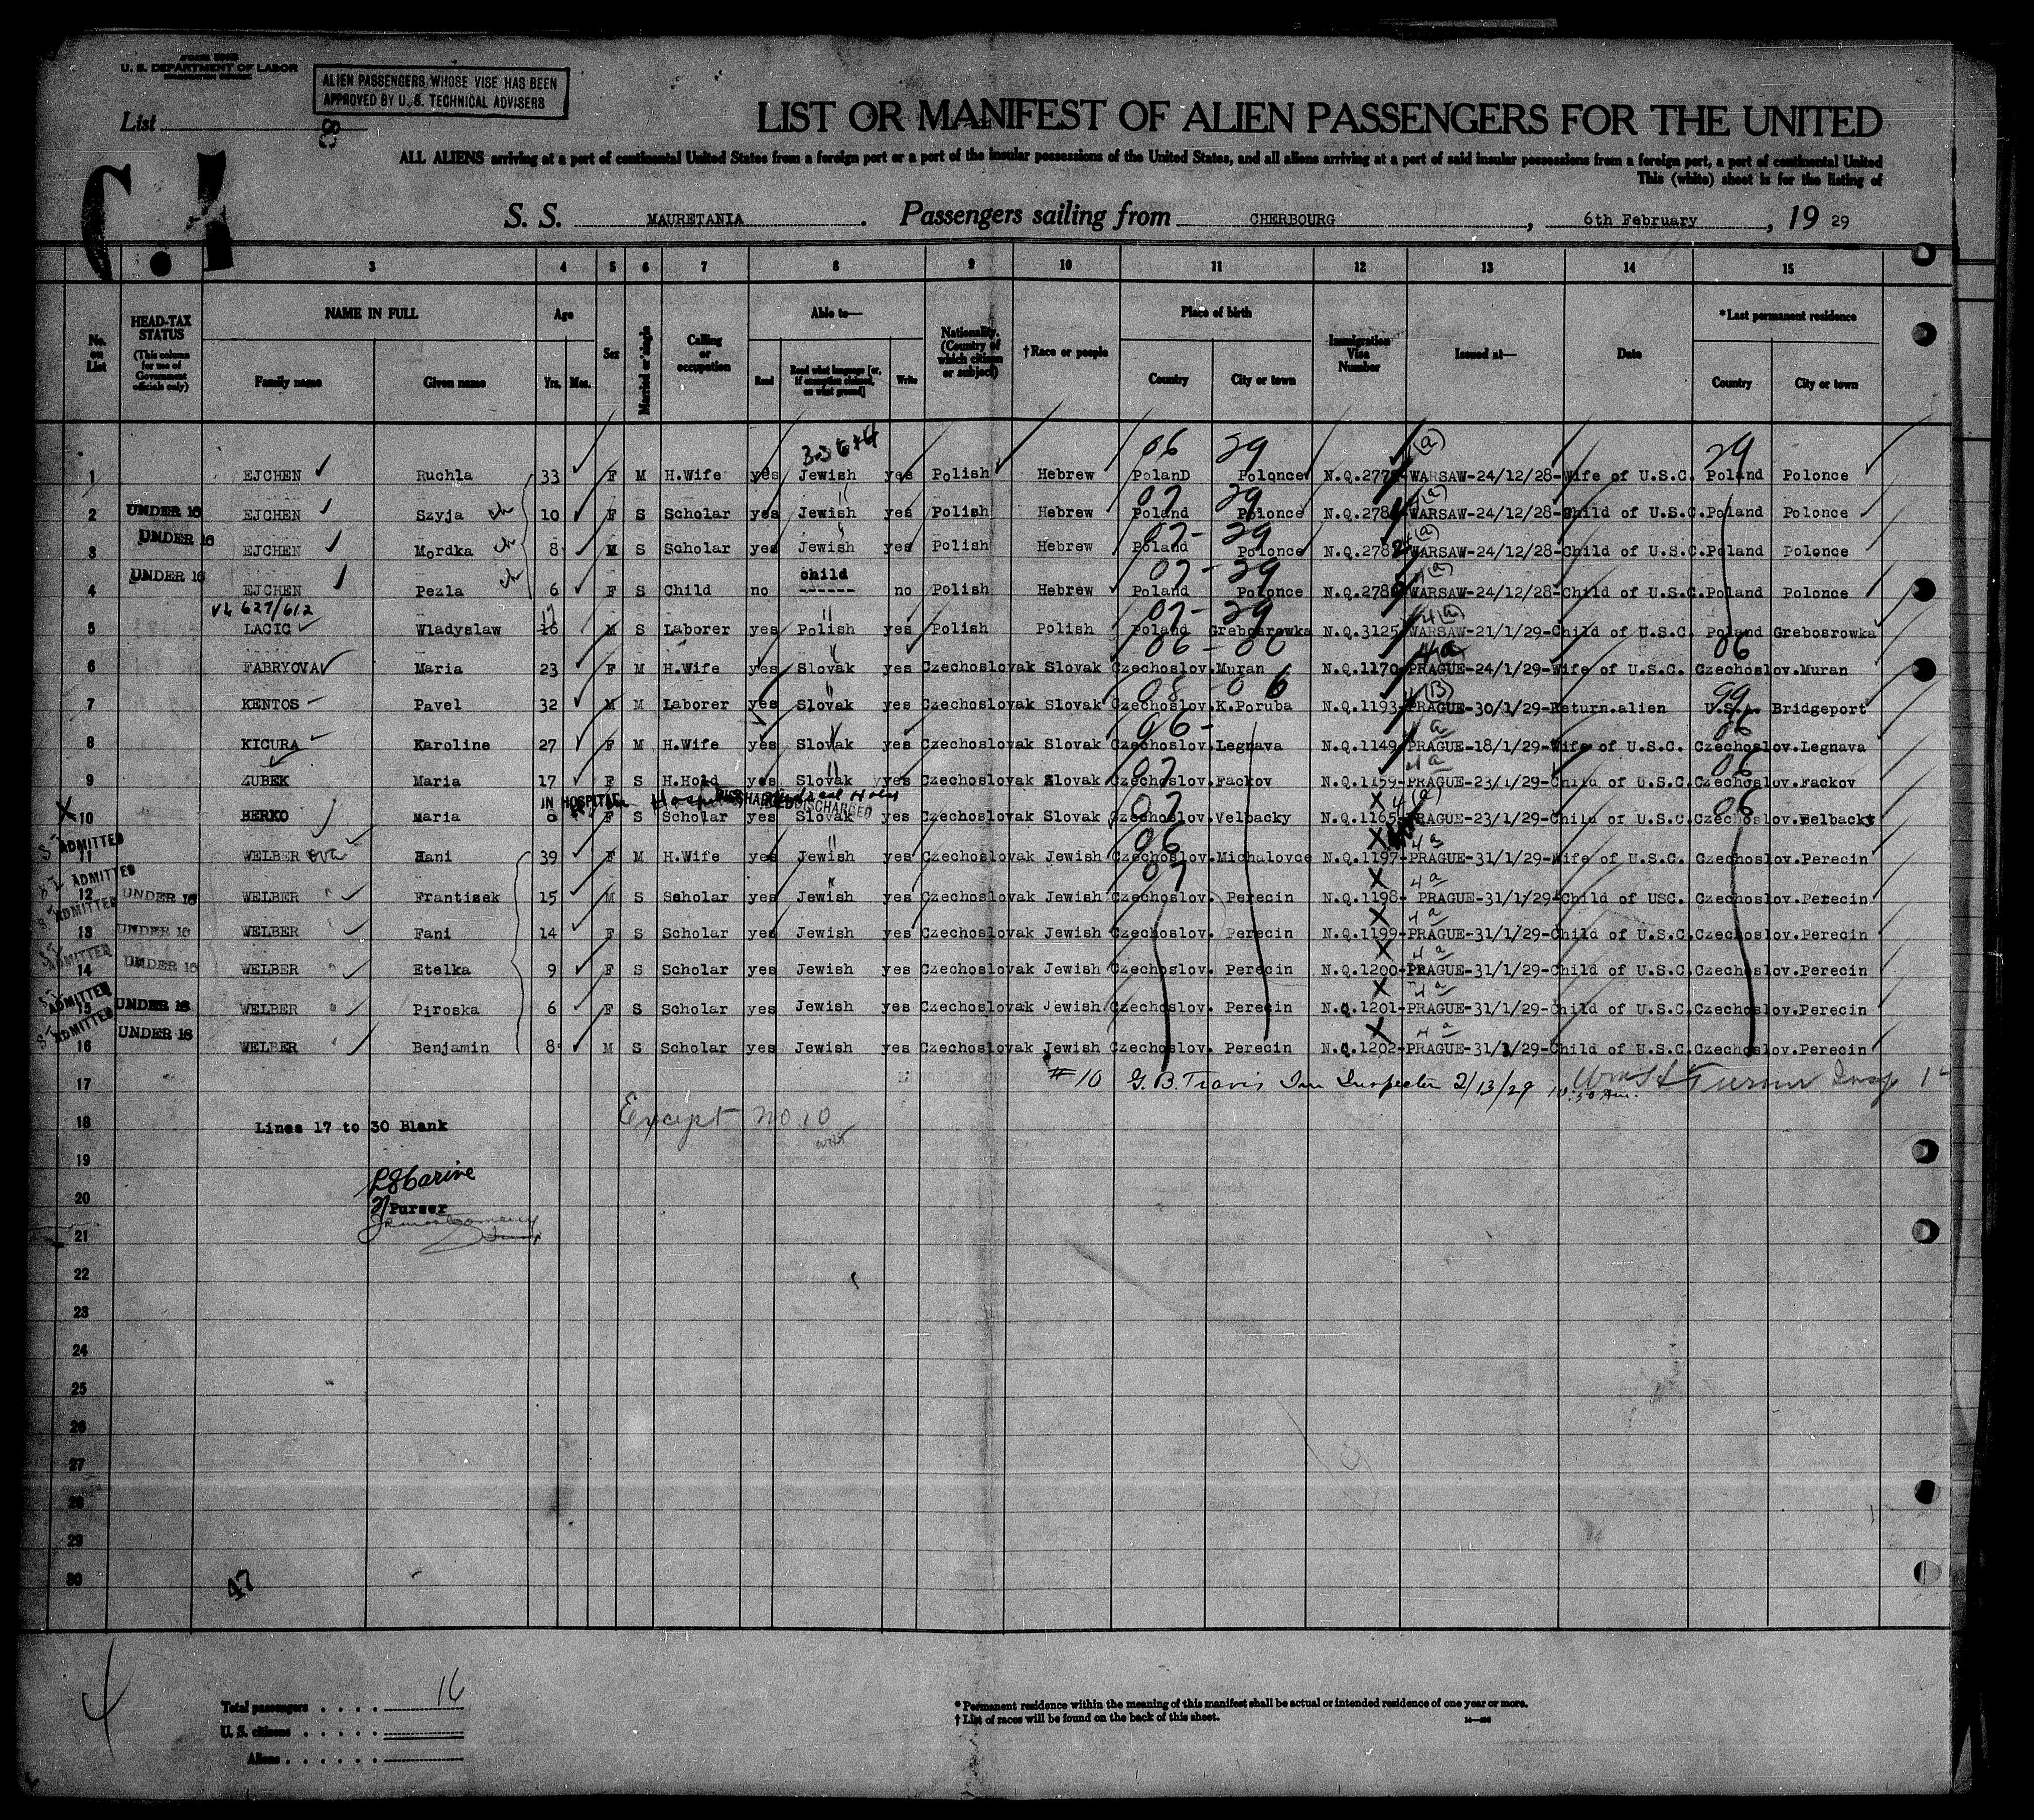 U. S. DEPARTMENT OF LABOR
ALIEN PASSENGERS WHOSE VISE HAS BEEN
APPROVED BY U. S. TECHNICAL ADVISERS
List
38
LIST OR MANIFEST OF ALIEN PASSENGERS FOR THE UNITED
ALL ALIENS arriving at a port of continental United States from a foreign port or a port of the insular possessions of the United States, and all aliens arriving at a port of said insular possessions from a foreign port, a port of continental United
This (white) sheet is for the listing of
S. S. MAURETANIA. Passengers sailing from CHERBOURG, 6th February, 19 29
3 4 5 6 7 8 9 10 11 12 13 14 15
No. on List
HEAD-TAX STATUS (This column for use of Government officials only)
NAME IN FULL
Family name Given name
Age
Yrs. Mos.
Sex
Married or single
Calling or occupation
Able to—
Read Read what language [or, if exemption claimed, on what ground] Write
Nationality. (Country of which citizen or subject)
†Race or people
Place of birth
Country City or town
Immigration Visa Number
Issued at—
Date
*Last permanent residence
Country City or town
06 29 (a) 29
1 EJCHEN Ruchla 33 F M H.Wife yes Jewish yes Polish Hebrew PolanD Polonce N.Q.277 WARSAW-24/12/28-Wife of U.S.C. Poland Polonce
07 29 (a)
2 UNDER 16 EJCHEN Szyja ch 10 F S Scholar yes Jewish yes Polish Hebrew Poland Polonce N.Q.278 WARSAW-24/12/28-Child of U.S.C. Poland Polonce
07- 29 (a)
3 UNDER 16 EJCHEN Mordka ch 8 M S Scholar yes Jewish yes Polish Hebrew Poland Polonce N.Q.2782 WARSAW-24/12/28-Child of U.S.C. Poland Polonce
child 07- 29 (a)
4 UNDER 16 EJCHEN Pezla ch 6 F S Child no ------ no Polish Hebrew Poland Polonce N.Q.278 WARSAW-24/12/28-Child of U.S.C. Poland Polonce
VL 627/612 17 07- 29 4(a)
5 LACIC Wladyslaw 16 M S Laborer yes Polish yes Polish Polish Poland Grebosrowka N.Q.3125 WARSAW-21/1/29-Child of U.S.C. Poland Grebosrowka
06 - 06 4a 06
6 FABRYOVA Maria 23 F M H.Wife yes Slovak yes Czechoslovak Slovak Czechoslov.Muran N.Q.1170-PRAGUE-24/1/29-Wife of U.S.C. Czechoslov.Muran
08 - 06 (B) 99
7 KENTOS Pavel 32 M M Laborer yes Slovak yes Czechoslovak Slovak Czechoslov.K.Poruba N.Q.1193-PRAGUE-30/1/29-Return.alien U.S.A. Bridgeport
06- 4a 06
8 KICURA Karoline 27 F M H.Wife yes Slovak yes Czechoslovak Slovak Czechoslov.Legnava N.Q.1149 PRAGUE-18/1/29-Wife of U.S.C. Czechoslov.Legnava
07 4a 06
9 ZUBEK Maria 17 F S H.Hold yes Slovak yes Czechoslovak Slovak Czechoslov.Fackov N.Q.1159-PRAGUE-23/1/29-Child of U.S.C. Czechoslov.Fackov
IN HOSPITAL DISCHARGED DISCHARGED 07 X 4(a) 06
X 10 BERKO Maria 8 F S Scholar yes Slovak yes Czechoslovak Slovak Czechoslov.Velbacky N.Q.1165-PRAGUE-23/1/29-Child of U.S.C. Czechoslov.Belbacky
06 X 4a
SI ADMITTED 11 WELBER ova Hani 39 F M H.Wife yes Jewish yes Czechoslovak Jewish Czechoslov.Michalovce N.Q.1197-PRAGUE-31/1/29-Wife of U.S.C. Czechoslov.Perecin
07 X 4a
SI ADMITTED 12 UNDER 16 WELBER " Frantisek 15 M S Scholar yes Jewish yes Czechoslovak Jewish Czechoslov. Perecin N.Q.1198- PRAGUE-31/1/29-Child of USC. Czechoslov.Perecin
X 4a
SI ADMITTED 13 UNDER 16 WELBER " Fani 14 F S Scholar yes Jewish yes Czechoslovak Jewish Czechoslov. Perecin N.Q.1199-PRAGUE-31/1/29-Child of U.S.C. Czechoslov.Perecin
X 4a
SI ADMITTED 14 UNDER 16 WELBER " Etelka 9 F S Scholar yes Jewish yes Czechoslovak Jewish Czechoslov. Perecin N.Q.1200-PRAGUE-31/1/29-Child of U.S.C. Czechoslov.Perecin
X 4a
SI ADMITTED 15 UNDER 16 WELBER " Piroska 6 F S Scholar yes Jewish yes Czechoslovak Jewish Czechoslov. Perecin N.Q.1201-PRAGUE-31/1/29-Child of U.S.C. Czechoslov.Perecin
X 4a
SI ADMITTED 16 UNDER 16 WELBER " Benjamin 8 M S Scholar yes Jewish yes Czechoslovak Jewish Czechoslov. Perecin N.Q.1202-PRAGUE-31/1/29-Child of U.S.C. Czechoslov.Perecin
17 #10 G. B. Travis Imm Inspector 2/13/29 10:30 Am.
Except no 10
18 Lines 17 to 30 Blank
19
20 Purser
21
22
23
24
25
26
27
28
29
30
47
Total passengers . . . . 16
U. S. citizens . . . . .
Aliens . . . . . .
* Permanent residence within the meaning of this manifest shall be actual or intended residence of one year or more.
† List of races will be found on the back of this sheet.